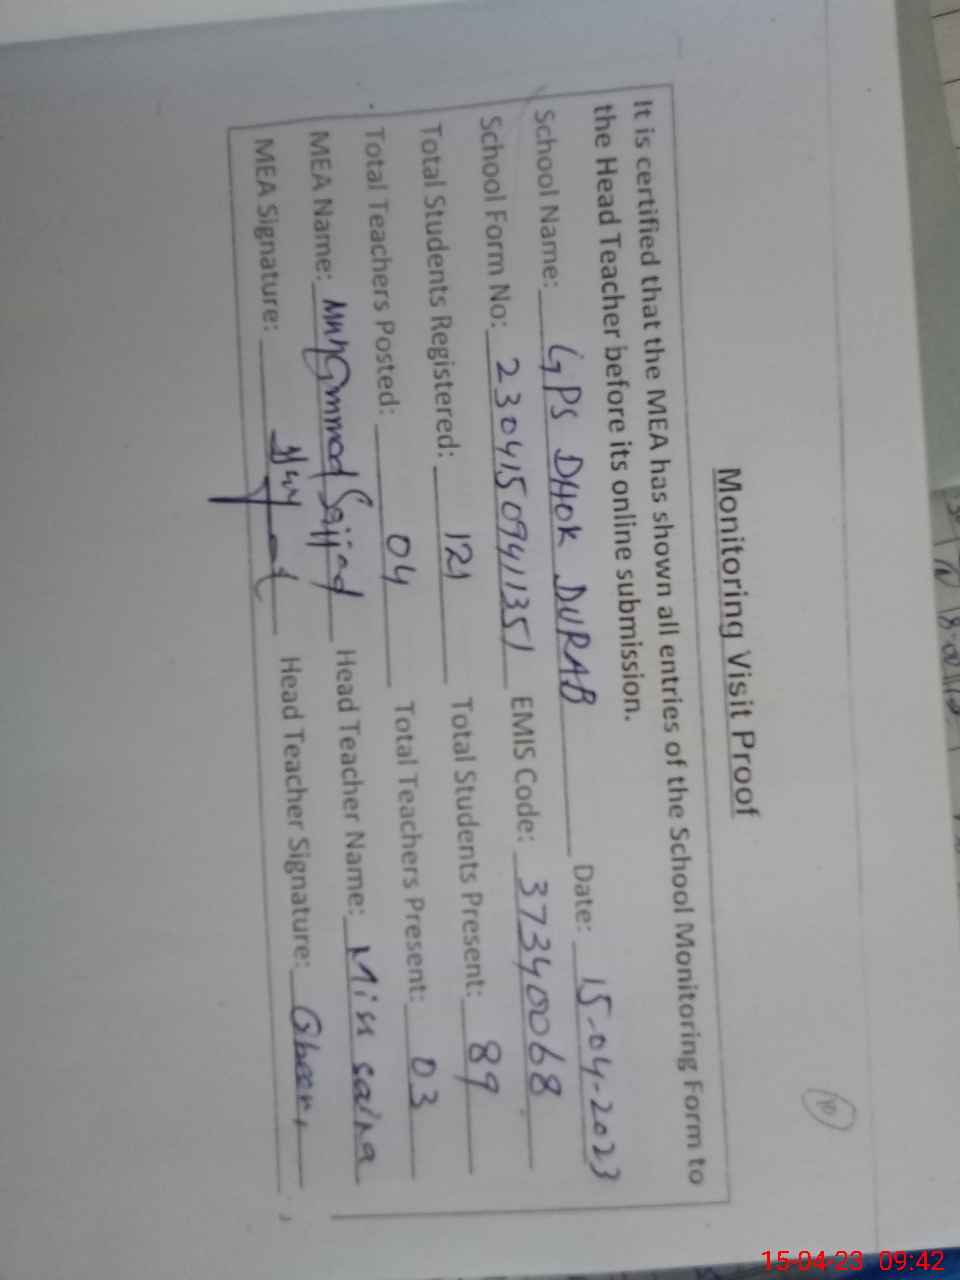 10
Monitoring Visit Proof
It is certified that the MEA has shown all entries of the School Monitoring Form to
the Head Teacher before its online submission.
School Name: GPS DHOK DURAB Date: 15-04-2023
School Form No: 23041509411351 EMIS Code: 37340068
Total Students Registered: 121 Total Students Present: 89
Total Teachers Posted: 04 Total Teachers Present: 03
MEA Name: Muhammad Sajjad Head Teacher Name: Miss saira
MEA Signature: Head Teacher Signature:
15-04-23 09:42